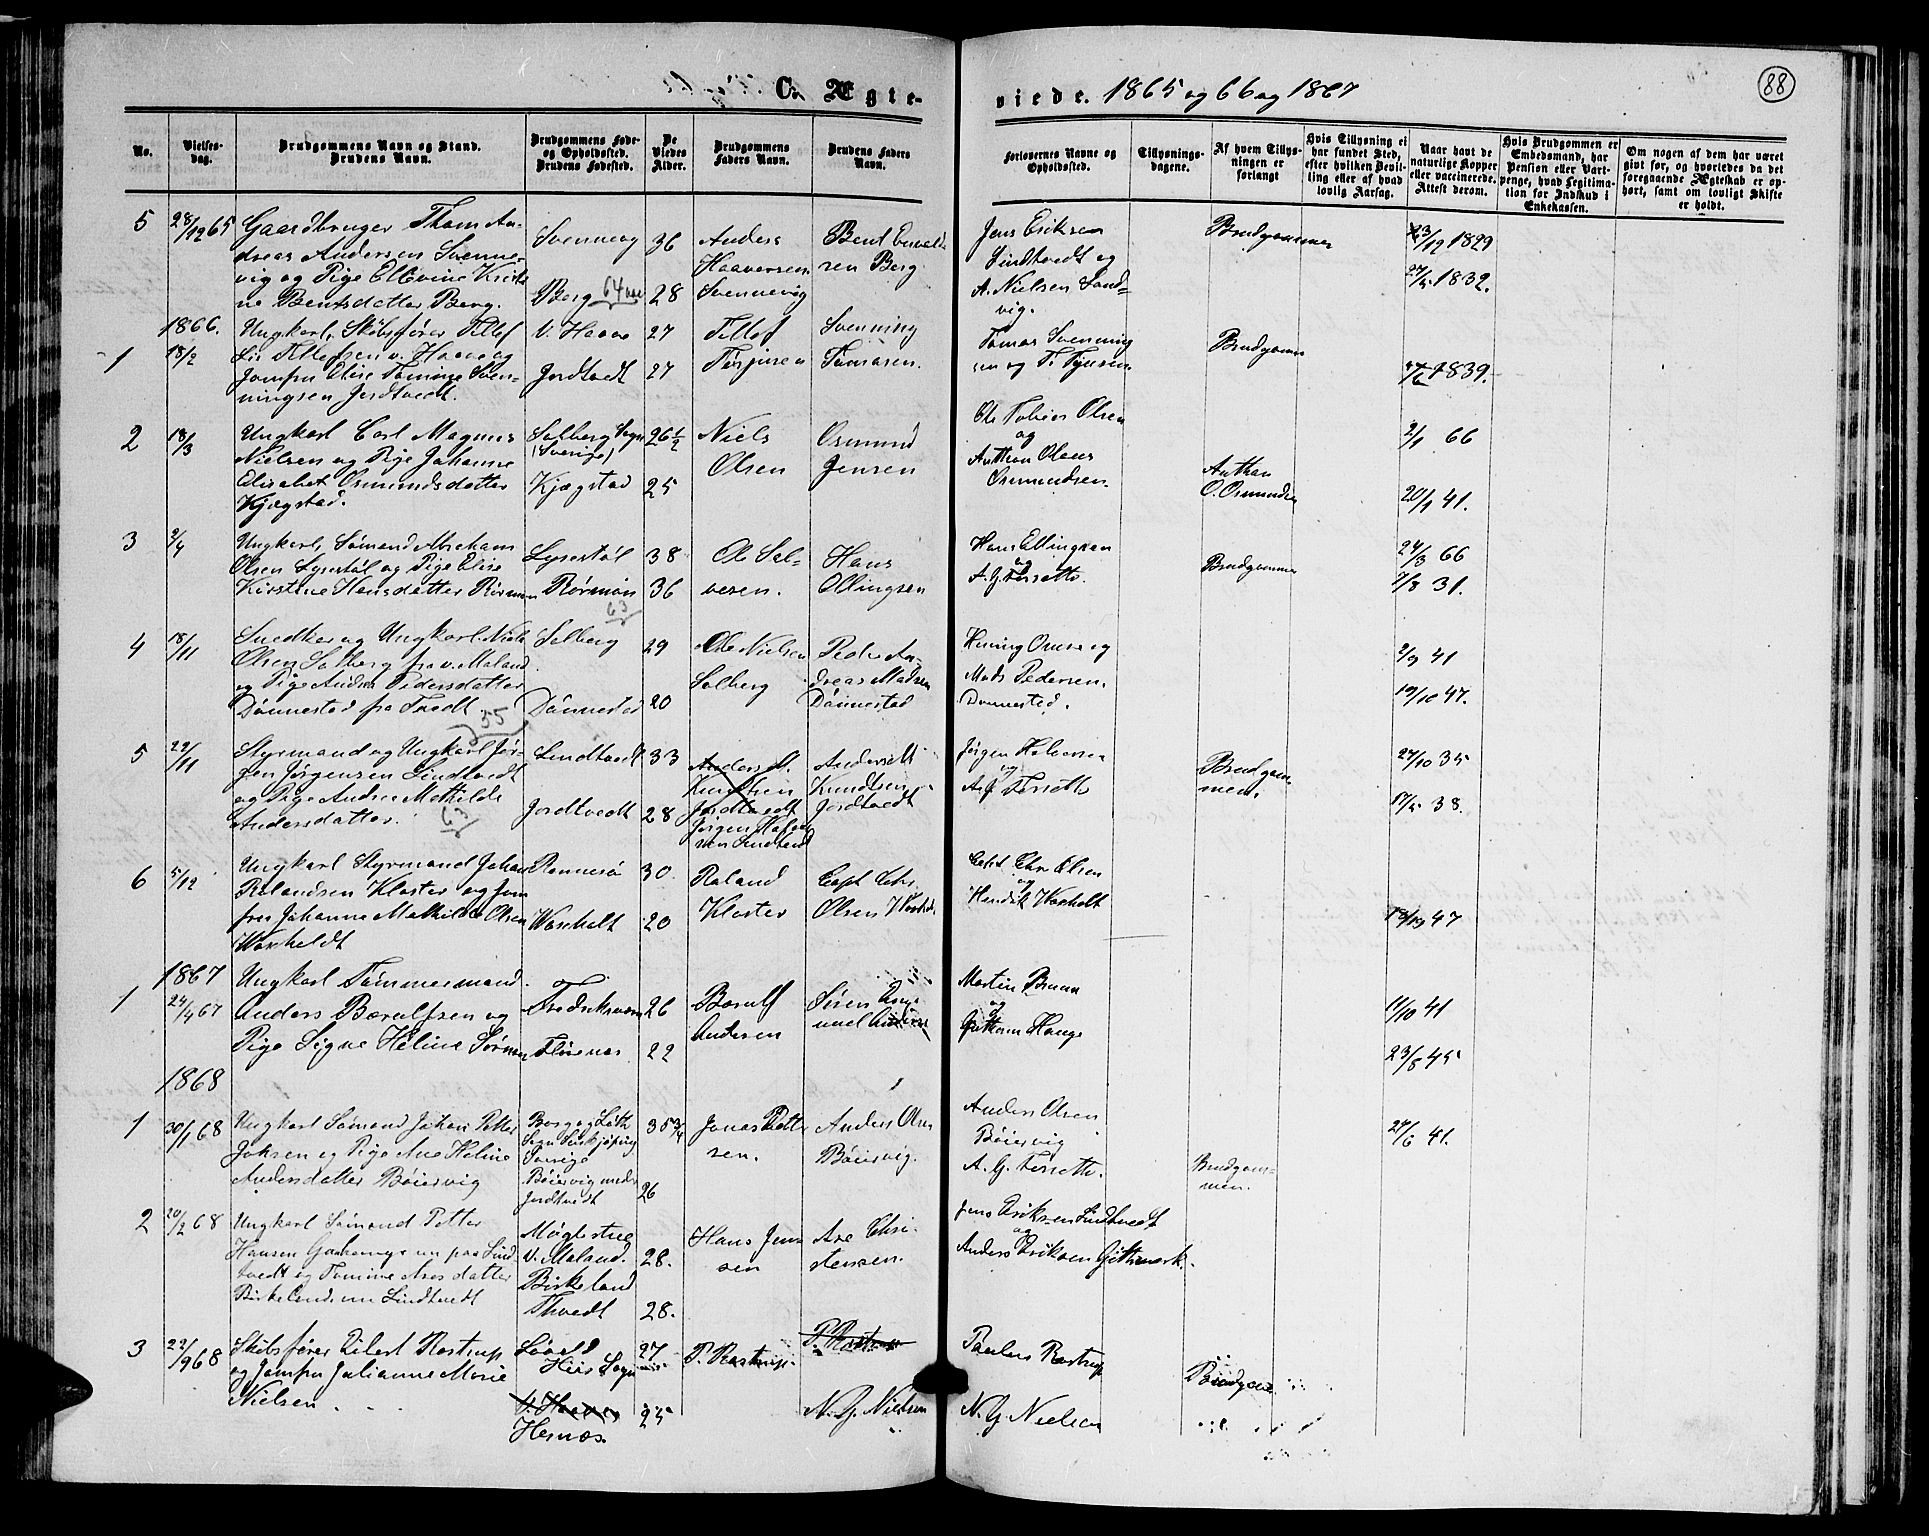 C. Ægte-
viede. 1865 og 66 og 1867
88
No.
Vielses-
dag.
Brudgommens Navn og Stand.
Brudens Navn.
Brudgommens Føde-
og Opholdssted.
Brudens Fødested.
De
Viedes
Alder.
Brudgommens
Faders Navn.
Brudens Faders
Navn.
Forlovernes Navne og
Opholdssted.
Tillysnings-
dagene.
Af hvem Tillys-
ningen er
forlangt
Hvis Tillysning ei
har fundet Sted,
efter hvilken Bevil-
ling eller af hvad
lovlig Aarsag.
Naar havt de
naturlige Kopper
eller vaccinerede.
Attest derom.
Hvis Brudgommen er
Embedsmand, har
Pension eller Vart-
penge, hvad Legitima-
tion for Indskud i
Enkekassen.
Om nogen af dem har været
givt før, og hvorledes da det
foregaaende Ægteskab er op-
hørt, samt om lovligt Skifte
er holdt.
5 28/12 65 Gaardbruger Thom An-
dreas Andersen Svenne-
vig og Pige Ellevine Kirsti-
ne Bentsdatter Berg.
Svennevig 36
Berg 64 28
Anders
Haaversen
Svennevig
Bent
sen Berg
Jens Eriksen
Lindtvedt og
A. Nielsen Sand-
vig.
Brudgommen
23/12 1829
27/5 1832.
1866.
1 18/2 Ungkarl, Skibsfører Tellef
Tellefsen v. Haave og
Jomfru Elise Tomine Sven-
ningsen Jordtvedt.
V. Haave 27
Jordtvedt 27
Tellef
Terjesen
Svenning
Tomasen.
Tomas Svenning
sen og T. Terjesen
Brudgomm
1839.
2 18/3 Ungkarl Carl Magnus
Nielsen og Pige Johanne
Elisabet Osmundsdatter
Kjægstad.
Solberg Sogn
(Sverige) 26 1/2
Kjægstad 25
Niels
Olsen
Osmund
Jensen
Ole Tobias Olsen
og
Anthon Olaus
Osmundsen.
Anthon
O. Osmundsen
2/1 66
20/9 41.
3 2/4 Ungkarl, Sømand Abraham
Olsen Lyrestøl og Pige Elise
Kirstine Hansdatter Rørmøn
Lyrestøl 38
Rørmøn 36
63
Ole Sal-
vesen.
Hans
Ellingsen
Hans Ellingsen
og
A. G. Tersette.
Brudgommen
24/3 66
7/8 31.
4 18/11 Snedker og Ungkarl Niels
Olsen Solberg fra v. Moland
og Pige Andrea Pedersdatter
Dønnestad fra Tvedt
Solberg 29
Dønnestad 20
Ole Nielsen
Solberg
Peder An-
dreas Madsen
Dønnestad
Henning Omre og
Mads Pedersen.
Dønnestad.
2/9 41
19/10 47.
35
5 22/11 Styrmand og Ungkarl Jør-
gen Jørgensen Lindtvedt
og Pige Andrea Mathilde
Andersdatter.
63
Lindtvedt 33
Jordtvedt 28
Anders
Knudsen
Jordtvedt
Jørgen Halvor
sen Lindtvedt
Anders
Knudsen
Jordtvedt
Jørgen Halvorsen
og
A. G. Tersette
Brudgom-
men.
27/10 35
17/5 38.
6 5/12 Ungkarl Styrmand Johan
Rolandsen Kloster og Jom
fru Johanne Mathilde Olsen
Woxholdt
Rønnesø 30.
Woxholt 20
Roland
Kloster
Capt Chr.
Olsen Woxholt
Capt Chr Olsen
og
Hendrik Woxholt
47
1867
1 24/4 67 Ungkarl Tømmermand
Anders Borulfsen og
Pige Signe Heline Sørensen
Fredriksværn 26
Florenæs 22
Borulf
Andersen
Søren
Andersen
Martin Bruun
og
Guttorm Hauge
11/10 41
23/5 45
1868
1 30/1 68 Ungkarl Sømand Johan Petter
Johsen og Pige Ane Heline
Andersdatter Bøiesvig
Sogn
Sverige
Bøiesvig under
Jordtvedt
35 3/4
26
Jonas Petter
sen.
Anders Olsen
Bøiesvig.
Anders Olsen
Bøiesvig
A. G. Tersette.
Brudgom-
men.
27/6 41.
2 20/2 68 Ungkarl Sømand Petter
Hansen nu paa Lind
tvedt og Tomine Aresdatter
Birkeland nu Lindtvedt
Møglestue
V. Moland. 28.
Birkeland
Thvedt 28.
Hans Jen-
sen
Are Chri-
stensen.
Jens Eriksen Lindtvedt
og
Anders Eriksen Gittmark.
3 22/9 68 Skibsfører Eilert Rostrup
og Jomfru Julianne Marie
Nielsen
Løvold
Hiis Sogn
27
V. Haave
Hesnæs 25
P. Rostrup.
P. Rostrup
N. G. Nielsen
Paulus Rostrup
N. G. Nielsen
Brudgom